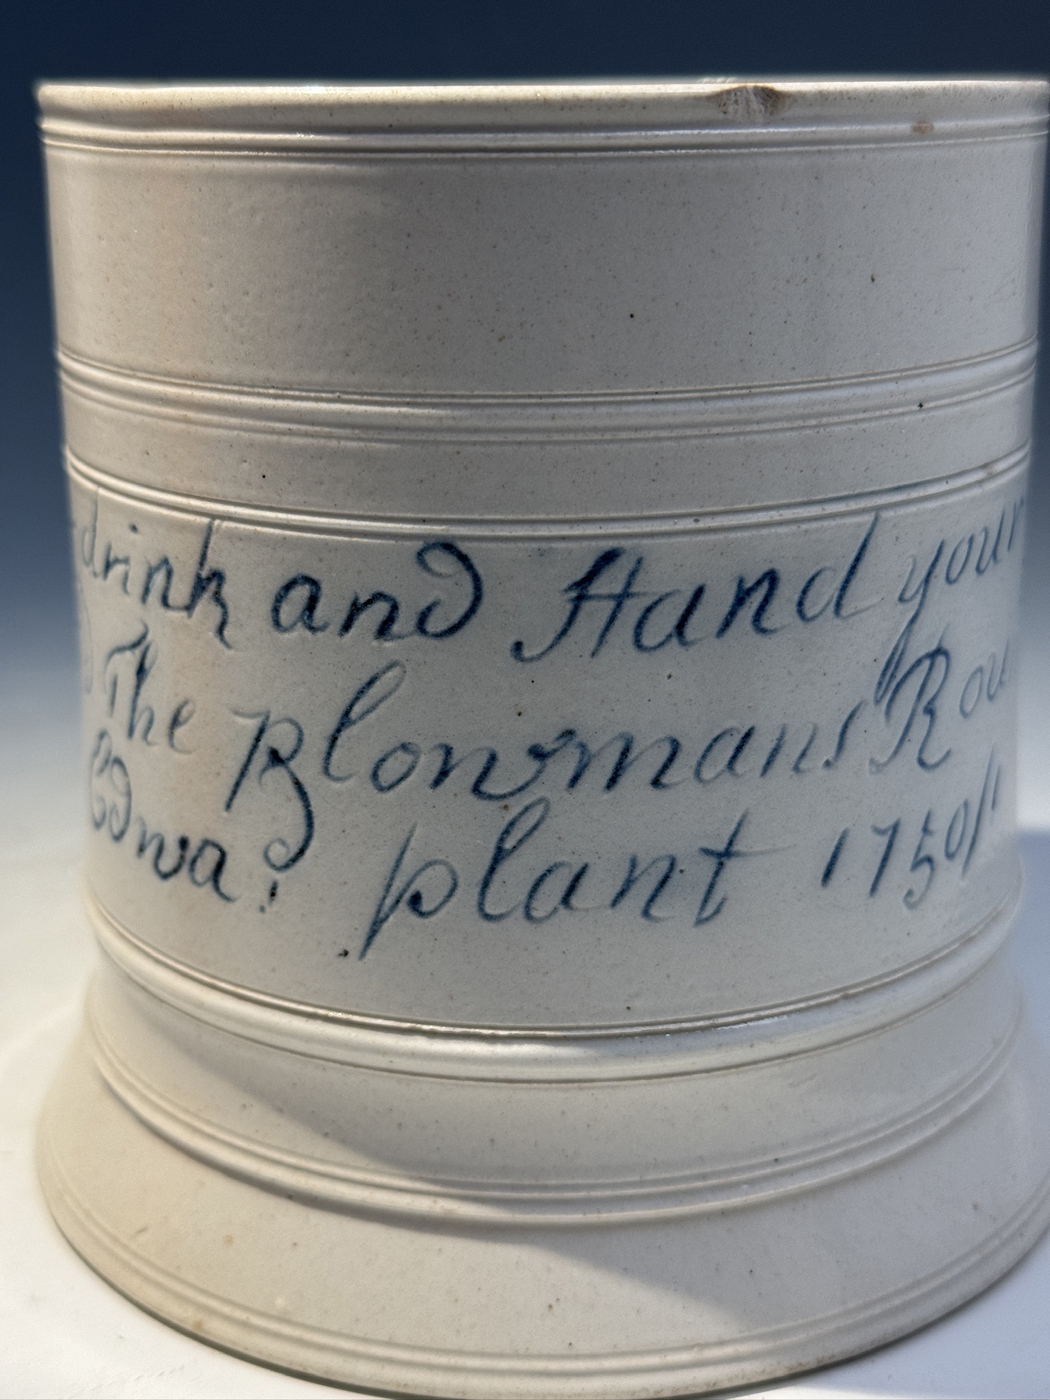 drink and Hand your
The Plowmans Rou
Edwa: plant 1750//